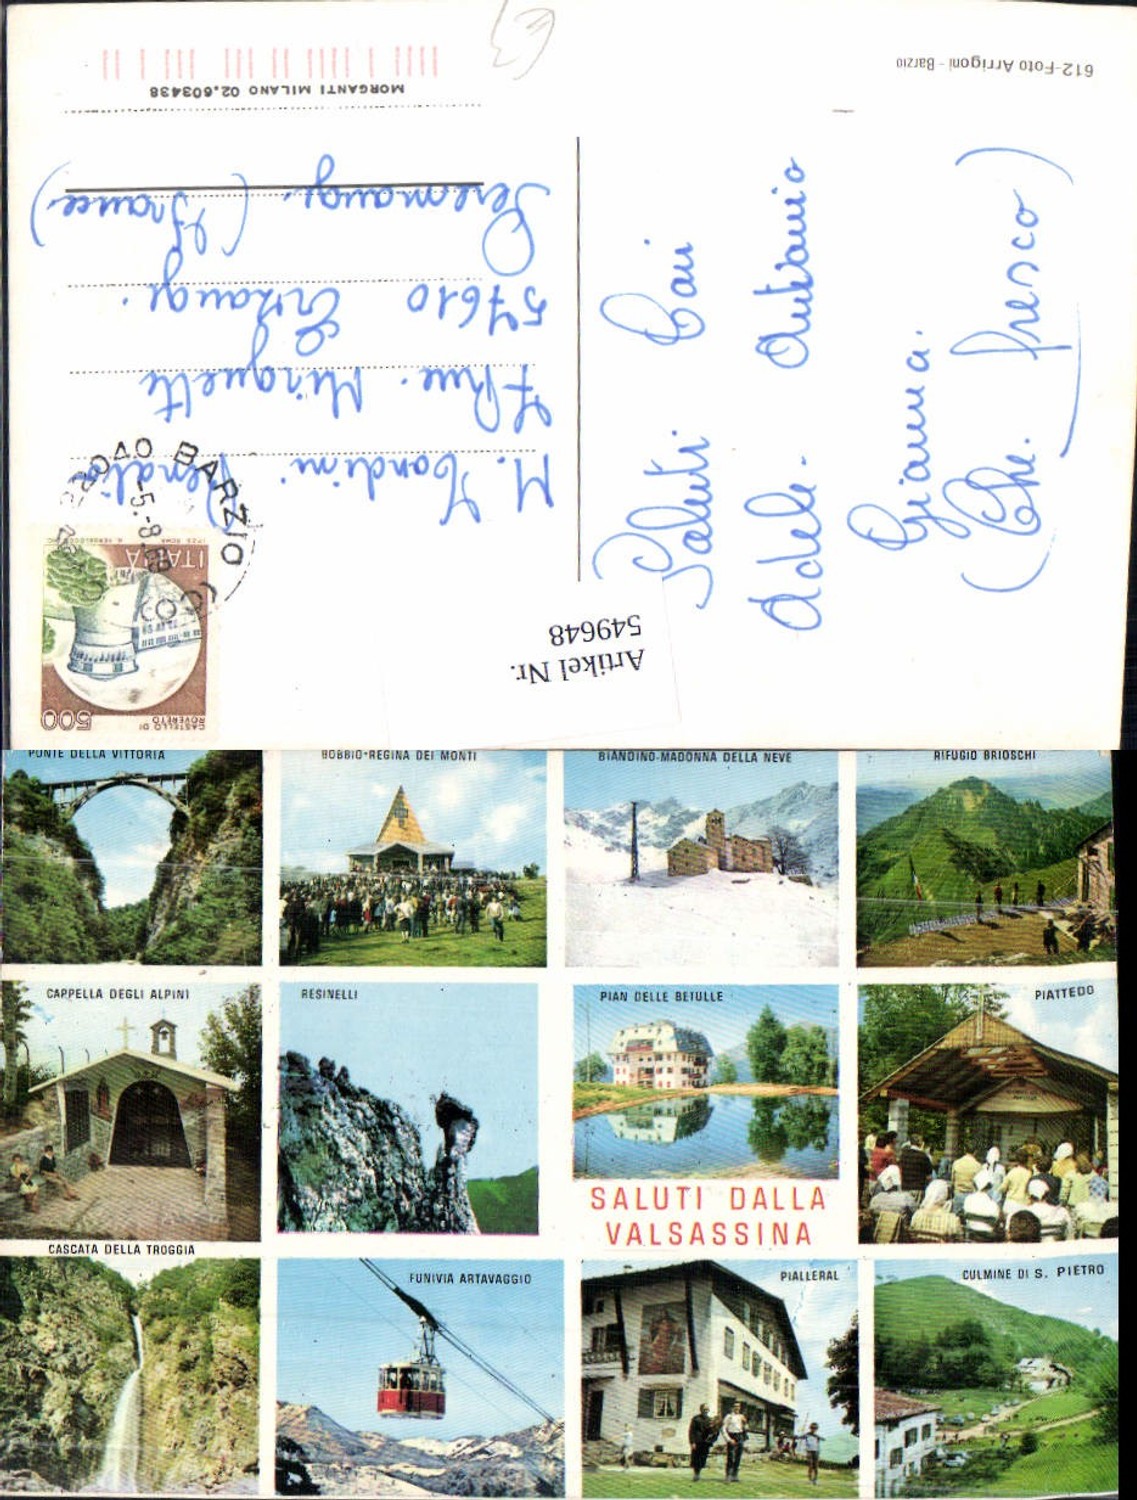 612-Foto Arrigoni - Barzio
Saluti Cari
Adele. Antonio
Gianna.
(Che fresco)
Artikel Nr.
549648
CASTELLO DI
ROVERETO
500
ITALIA
BARZIO
-5.-8.89
M. Renalio
7 Rue. Minquette
57610 Erzange.
Seremange. (France)
MORGANTI MILANO 02.603438
PONTE DELLA VITTORIA
BOBBIO-REGINA DEI MONTI
BIANDINO-MADONNA DELLA NEVE
RIFUGIO BRIOSCHI
CAPPELLA DEGLI ALPINI
RESINELLI
PIAN DELLE BETULLE
PIATTEDO
SALUTI DALLA
VALSASSINA
CASCATA DELLA TROGGIA
FUNIVIA ARTAVAGGIO
PIALLERAL
CULMINE DI S. PIETRO